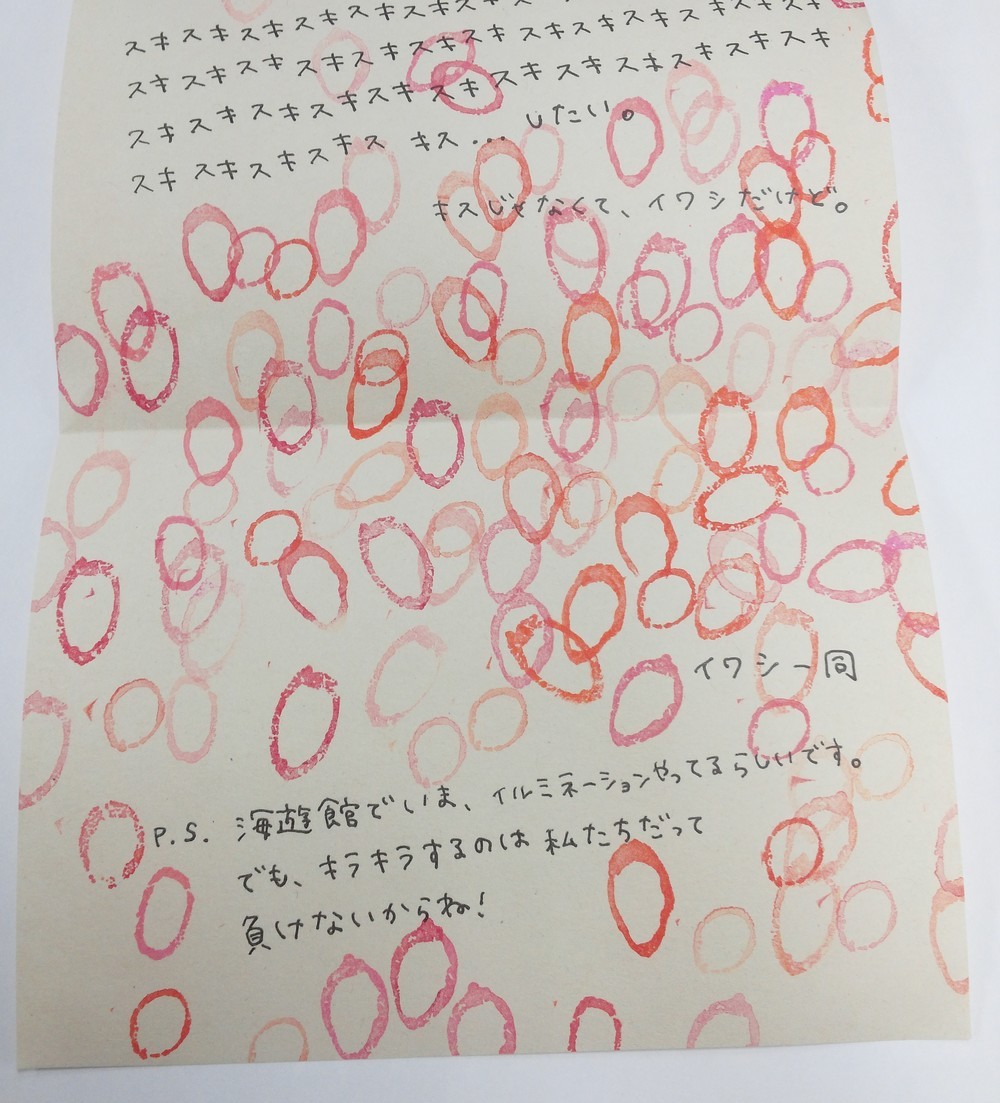 スキスキスキスキスキスキスキ
スキスキスキスキスキスキスキスキスキスキスキスキスキ
スキスキスキスキスキスキスキスキスキスキスキスキ
スキスキスキスキス キス... したい。
キスじゃなくて、イワシだけど。
イワシ一同
P.S. 海遊館でいま、イルミネーションやってるらしいです。
でも、キラキラするのは私たちだって
負けないからね!